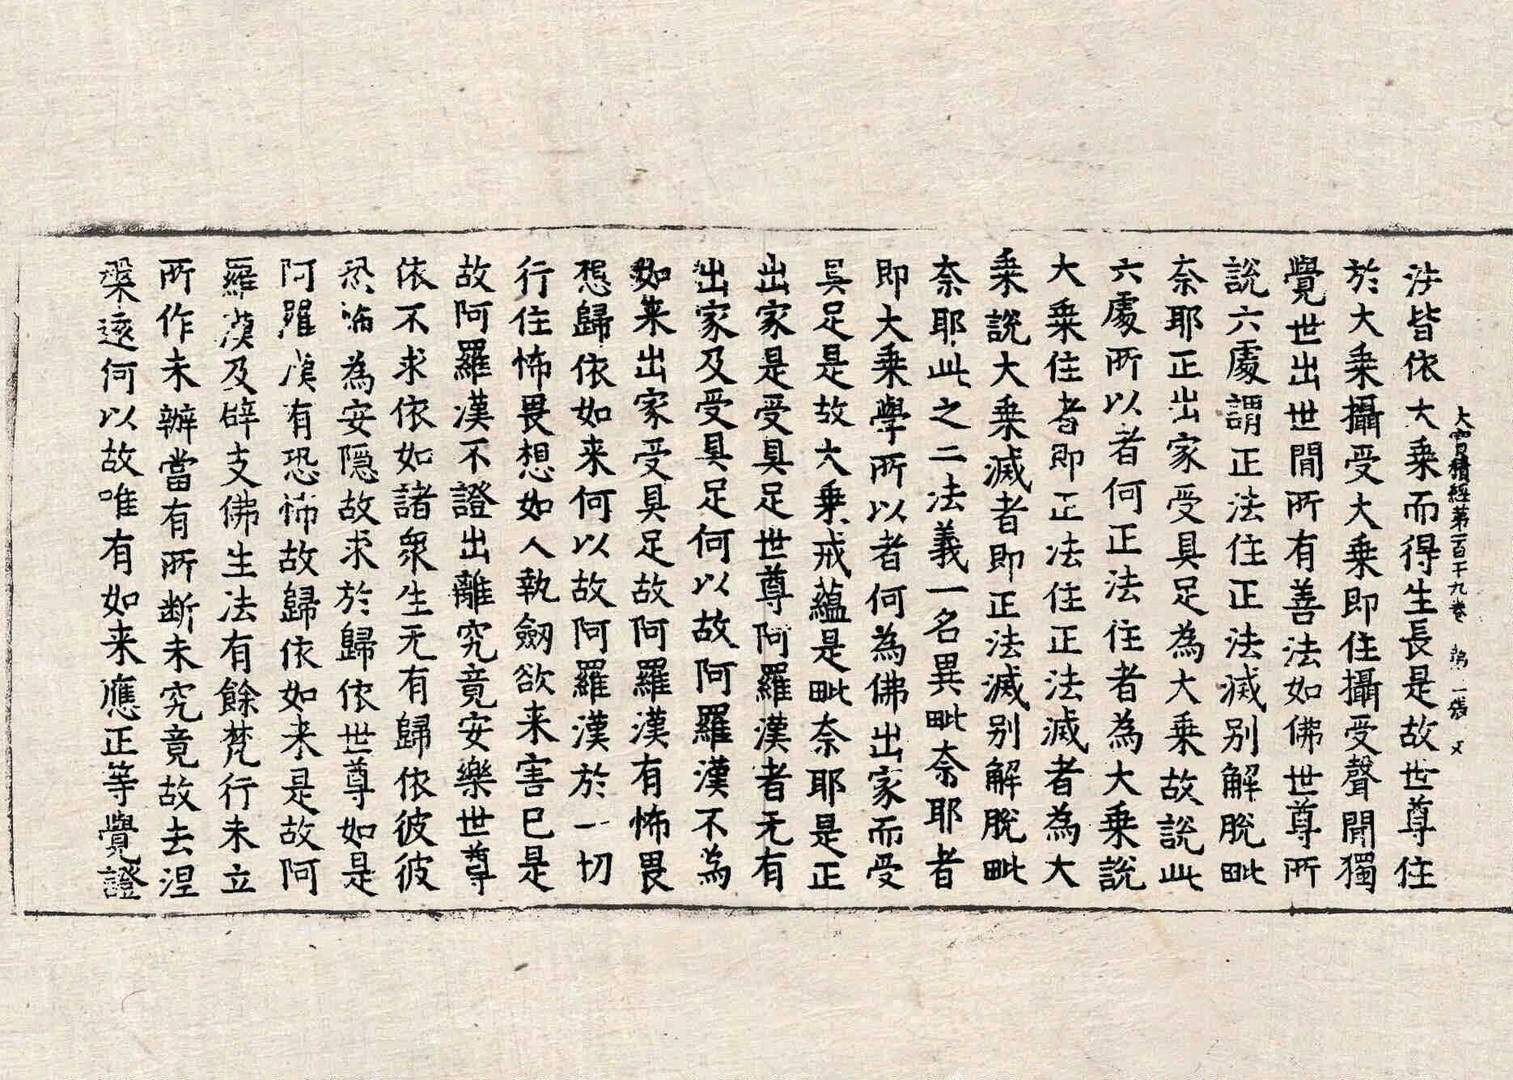 大寶積經第一百十九卷 張
法皆依大乗而得生長是故世尊住
於大乗攝受大乗即住攝受聲聞獨
覺世出世間所有善法如佛世尊所
說六處謂正法住正法滅別解脫毗
奈耶正出家受具足為大乗故說此
六處所以者何正法住者為大乗說
大乗住者即正法住正法滅者為大
乗說大乗滅者即正法滅別解脫毗
奈耶此之二法義一名異毗奈耶者
即大乗學所以者何為佛出家而受
具足是故大乗戒蘊是毗奈耶是正
出家是受具足世尊阿羅漢者无有
出家及受具足何以故阿羅漢不為
如来出家受具足故阿羅漢有怖畏
想歸依如来何以故阿羅漢於一切
行住怖畏想如人執劔欲来害已是
故阿羅漢不證出離究竟安樂世尊
依不求依如諸衆生无有歸依彼彼
恐怖為安隱故求於歸依世尊如是
阿羅漢有恐怖故歸依如来是故阿
羅漢及辟支佛生法有餘梵行未立
所作未辦當有所断未究竟故去涅
槃遠何以故唯有如来應正等覺證